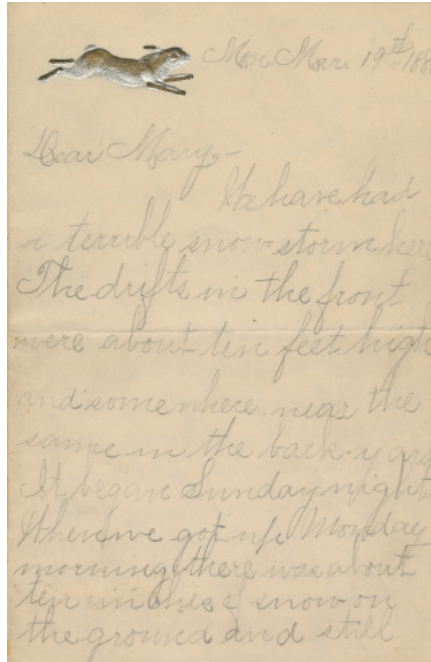 Mon. Mar. 19th, 188
Dear Mary,—
We have had
a terrible snow-storm here
The drifts in the front
were about ten feet high
and somewhere near the
same in the back-yard
It began Sunday night.
When we got up Monday
morning there was about
ten inches of snow on
the ground and still